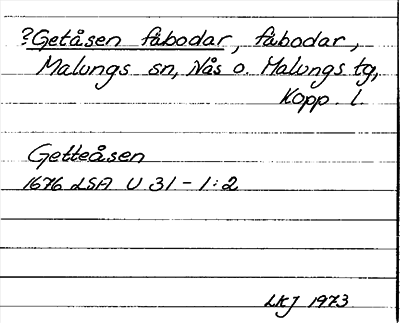 ?Getåsen fäbodar, fäbodar,
Malungs sn, Nås o. Malungs tg,
Kopp. l.
Getteåsen
1676 LSA U 31-1:2
LKJ 1973